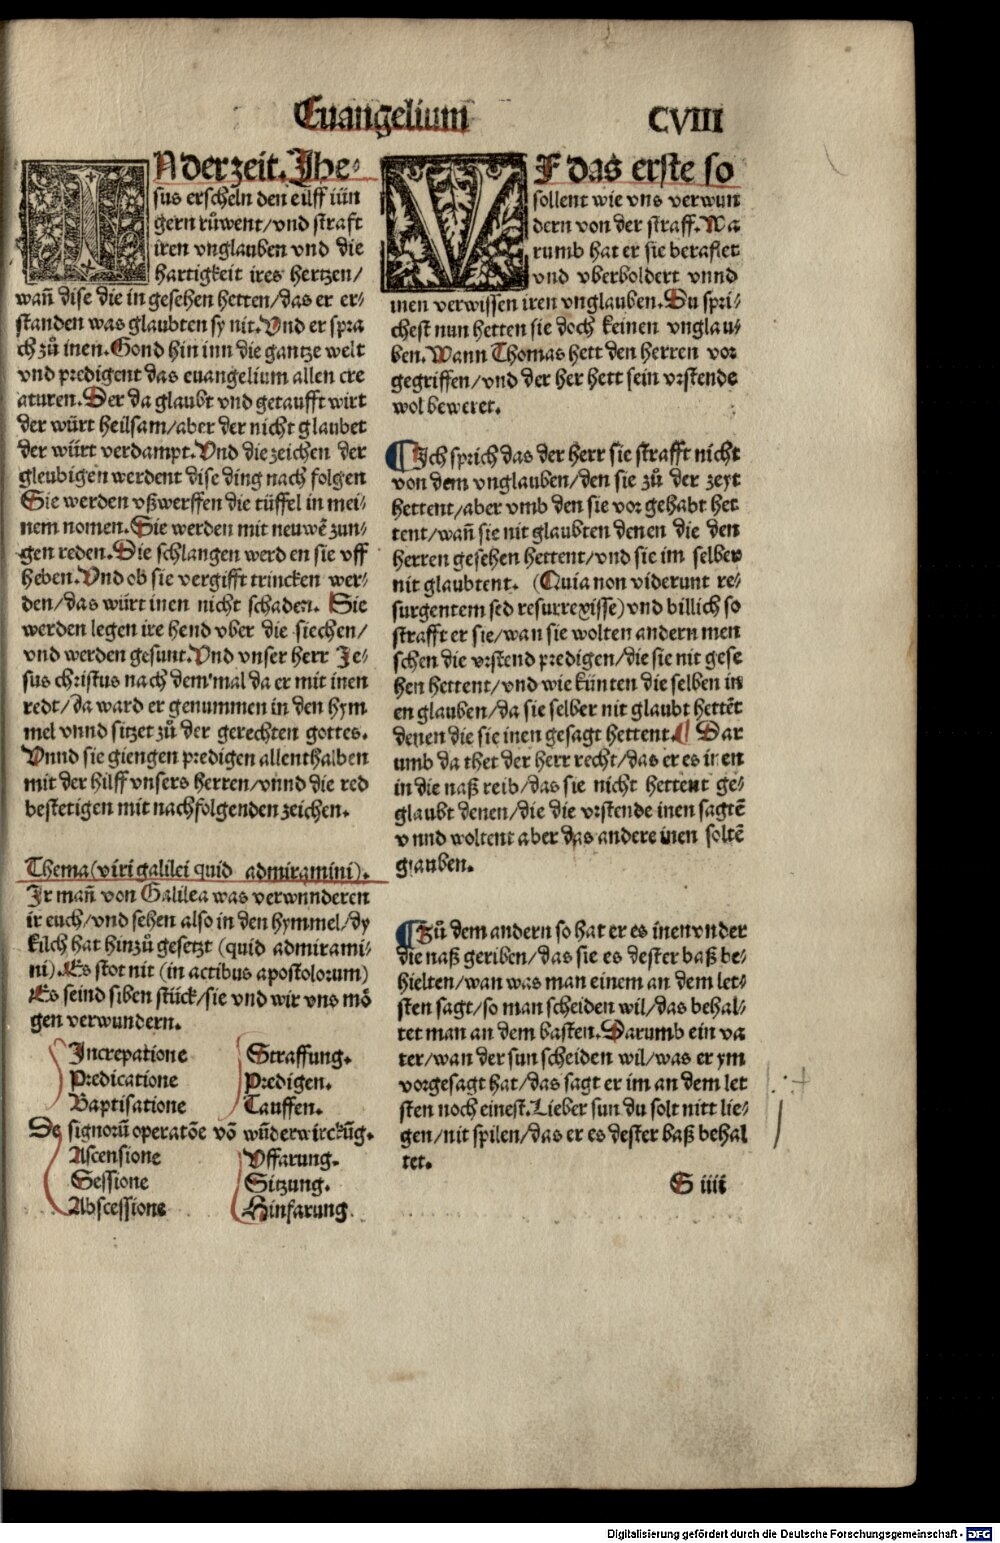 Euangelium CVIII
IN der zeit. Jhe-
sus erscheln den eilff iün
gern růwent/vnd straft
iren vnglauben vnd die
hartigkeit ires hertzen/
wañ dise die in gesehen hetten/das er er-
standen was glaubten sy nit. Vnd er spra
ch zů inen. Gond hin inn die gantze welt
vnd predigent das euangelium allen cre
aturen. Der da glaubt vnd getaufft wirt
der würt heilsam/aber der nicht glaubet
der würt verdampt. Vnd die zeichen der
gleubigen werdent dise ding nach folgen
Sie werden vßwerffen die tüffel in mei-
nem nomen. Sie werden mit neuwē zun-
gen reden. Die schlangen werd en sie vff
heben. Vnd ob sie vergifft trincken wer-
den/das würt inen nicht schaden. Sie
werden legen ire hend vber die siechen/
vnd werden gesunt. Vnd vnser herr Je-
sus christus nach dem mal da er mit inen
redt/da ward er genummen in den hym
mel vnnd sitzet zů der gerechten gottes.
Vnnd sie giengen predigen allenthalben
mit der hilff vnsers herren/vnnd die red
bestetigen mit nachfolgenden zeichen.
Thema (viri galilei quid admiramini).
Ir mañ von Galilea was verwunderen
ir euch/vnd sehen also in den hymmel/dy
kilch hat hinzů gesetzt (quid admirami-
ni). Es stot nit (in actibus apostolorum)
Es seind siben stück/sie vnd wir vns mö
gen verwundern.
Increpatione Straffung.
Predicatione Predigen.
Baptisatione Tauffen.
De signorū operatōe vō wūderwirckūg.
Ascensione Vffarung.
Sessione Sitzung.
Abscessione Hinfarung.
VF das erste so
sollent wie vns verwun
dern von der straff. Wa
rumb hat er sie beraflet
vnd vberboldert vnnd
inen verwissen iren vnglauben. Du spri-
chest nun hetten sie doch keinen vnglau-
ben. Wann Thomas hett den herren vor
gegriffen/vnd der her hett sein vrstende
wol beweret.
¶ Ich sprich das der herr sie strafft nicht
von dem vnglauben/den sie zů der zeyt
hettent/aber vmb den sie vor gehabt het
tent/wañ sie nit glaubten denen die den
herren gesehen hettent/vnd sie im selber
nit glaubtent. (Quia non viderunt re-
surgentem sed resurrexisse) vnd billich so
strafft er sie/wan sie wolten andern men
schen die vrstend predigen/die sie nit gese
hen hettent/vnd wie künten die selben in
en glauben/da sie selber nit glaubt hettēt
denen die sie inen gesagt hettent. ¶ Dar
umb da thet der herr recht/das er es inen
in die naß reib/das sie nicht hettent ge-
glaubt denen/die die vrstende inen sagtē
vnnd woltent aber das andere inen soltē
glauben.
¶ Zů dem andern so hat er es inen vnder
die naß geriben/das sie es dester baß be-
hielten/wan was man einem an dem let-
sten sagt/so man scheiden wil/das behal-
tet man an dem basten. Darumb ein va
ter/wan der sun scheiden wil/was er ym
vorgesagt hat/das sagt er im an dem let
sten noch einest. Lieber sun du solt nitt lie-
gen/nit spilen/das er es dester baß behal
tet.
S iiii
Digitalisierung gefördert durch die Deutsche Forschungsgemeinschaft - DFG